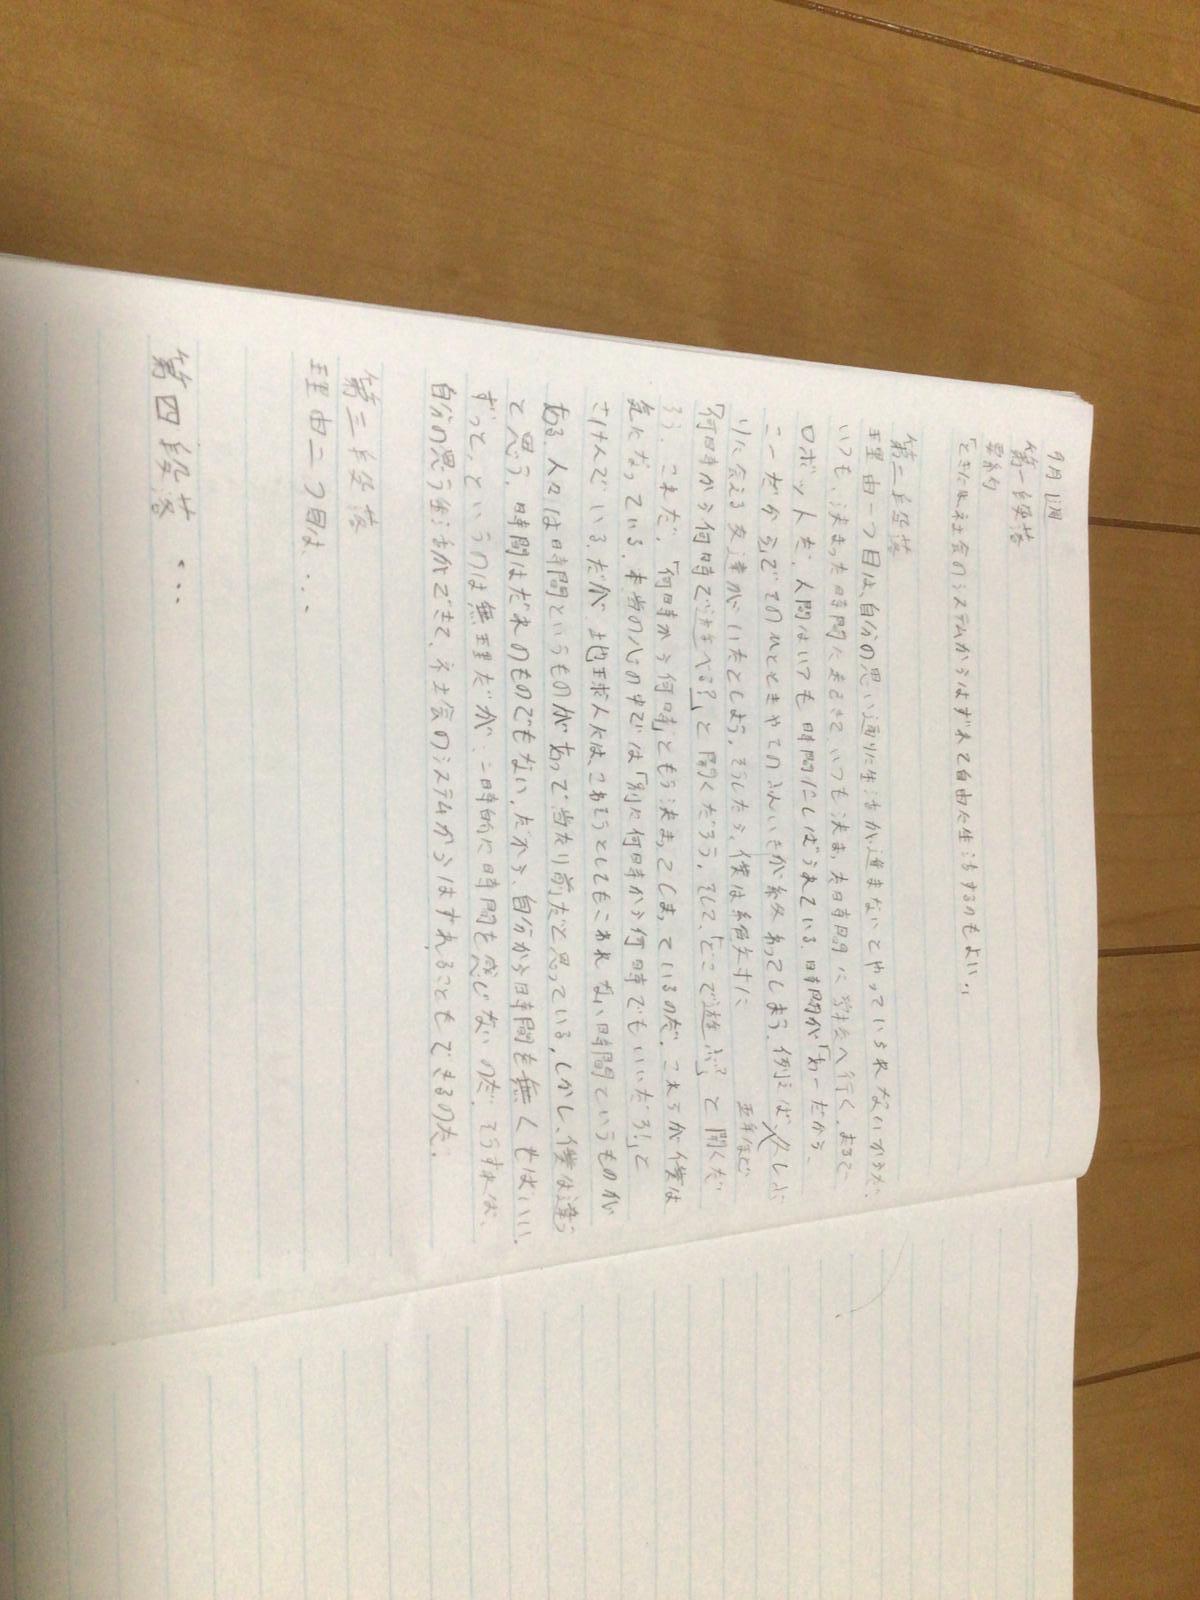 9月1週
第一段落
要約
「ときには社会のシステムからはずれて自由に生活するのもよい。」
第二段落
理由一つ目は、自分の思い通りに生活が進まないとやっていられないからだ。
いつも、決まった時間に起きて、いつも決まった時間に学校へ行く。まるで
ロボットだ。人間はいつも時間にしばられている。時間が「あーだから、
こーだから」でそのひとときやそのふんいきが終わってしまう。例えば久しぶ
りに会える友達がいたとしよう。そうしたら、僕は絶対に
「何時から何時まで遊べる?」と聞くだろう。そして、「どこで遊ぶ?」と聞くだ
ろう。これだ。「何時から何時」ともう決まってしまっているのだ。これらが僕は
気になっている。本当の心の中では「別に何時から何時でもいいだろ!」と
さけんでいる。だが、地球人には、こわそうとしてもこわれない時間というものが
ある。人々は時間というものがあって当たり前だと思っている。しかし、僕は違う
と思う。時間はだれのものでもない。だから、自分から時間を無くせばいい。
ずっと、というのは無理だが、一時的に時間を感じないのだ。そうすれば、
自分の思う生活ができて、社会のシステムからはずれることもできるのだ。
第三段落
理由二つ目は、...
第四段落 ...